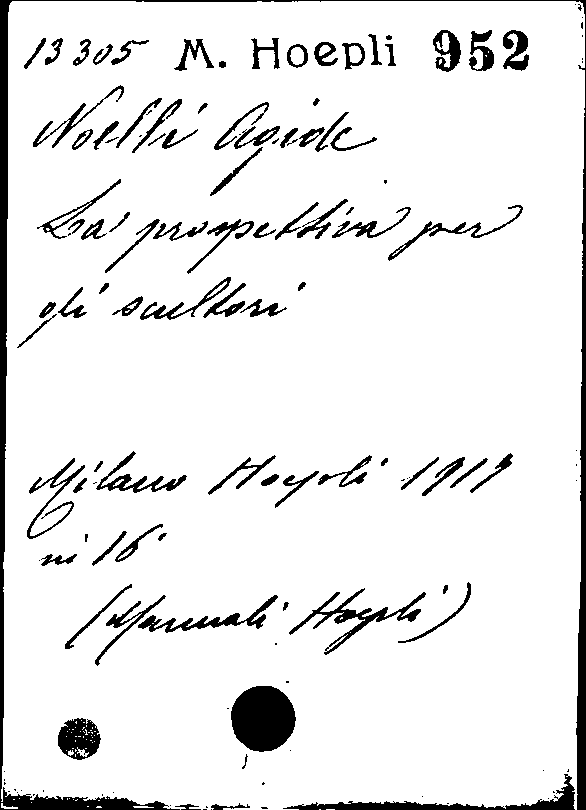 13305 M. Hoepli 952
Noelli Agide
La prospettiva per
gli scultori
Milano Hoepli 1919
in 16°
(Manuali Hoepli)